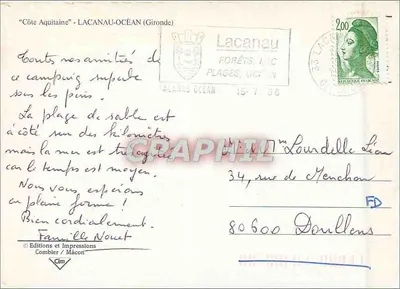 "Côte Aquitaine" - LACANAU-OCÉAN (Gironde)
Toutes nos amitiés de
ce camping superbe
sous les pins.
La plage de sable est
à côté sur des kilomètres
mais la mer est très agitée
car le temps est moyen.
Nous vous espérons
en pleine forme !
Bien cordialement.
Famille Nouet
© Editions et Impressions
Combier / Mâcon
Cim
Lacanau
FORÊTS, LAC
PLAGES, OCEAN
LACANAU OCEAN 15-7 86
33 LACANAU
2,00
CARPHIL
M. et Mme Lourdelle Léon
34, rue de Menchon
FD
80600 Doullens